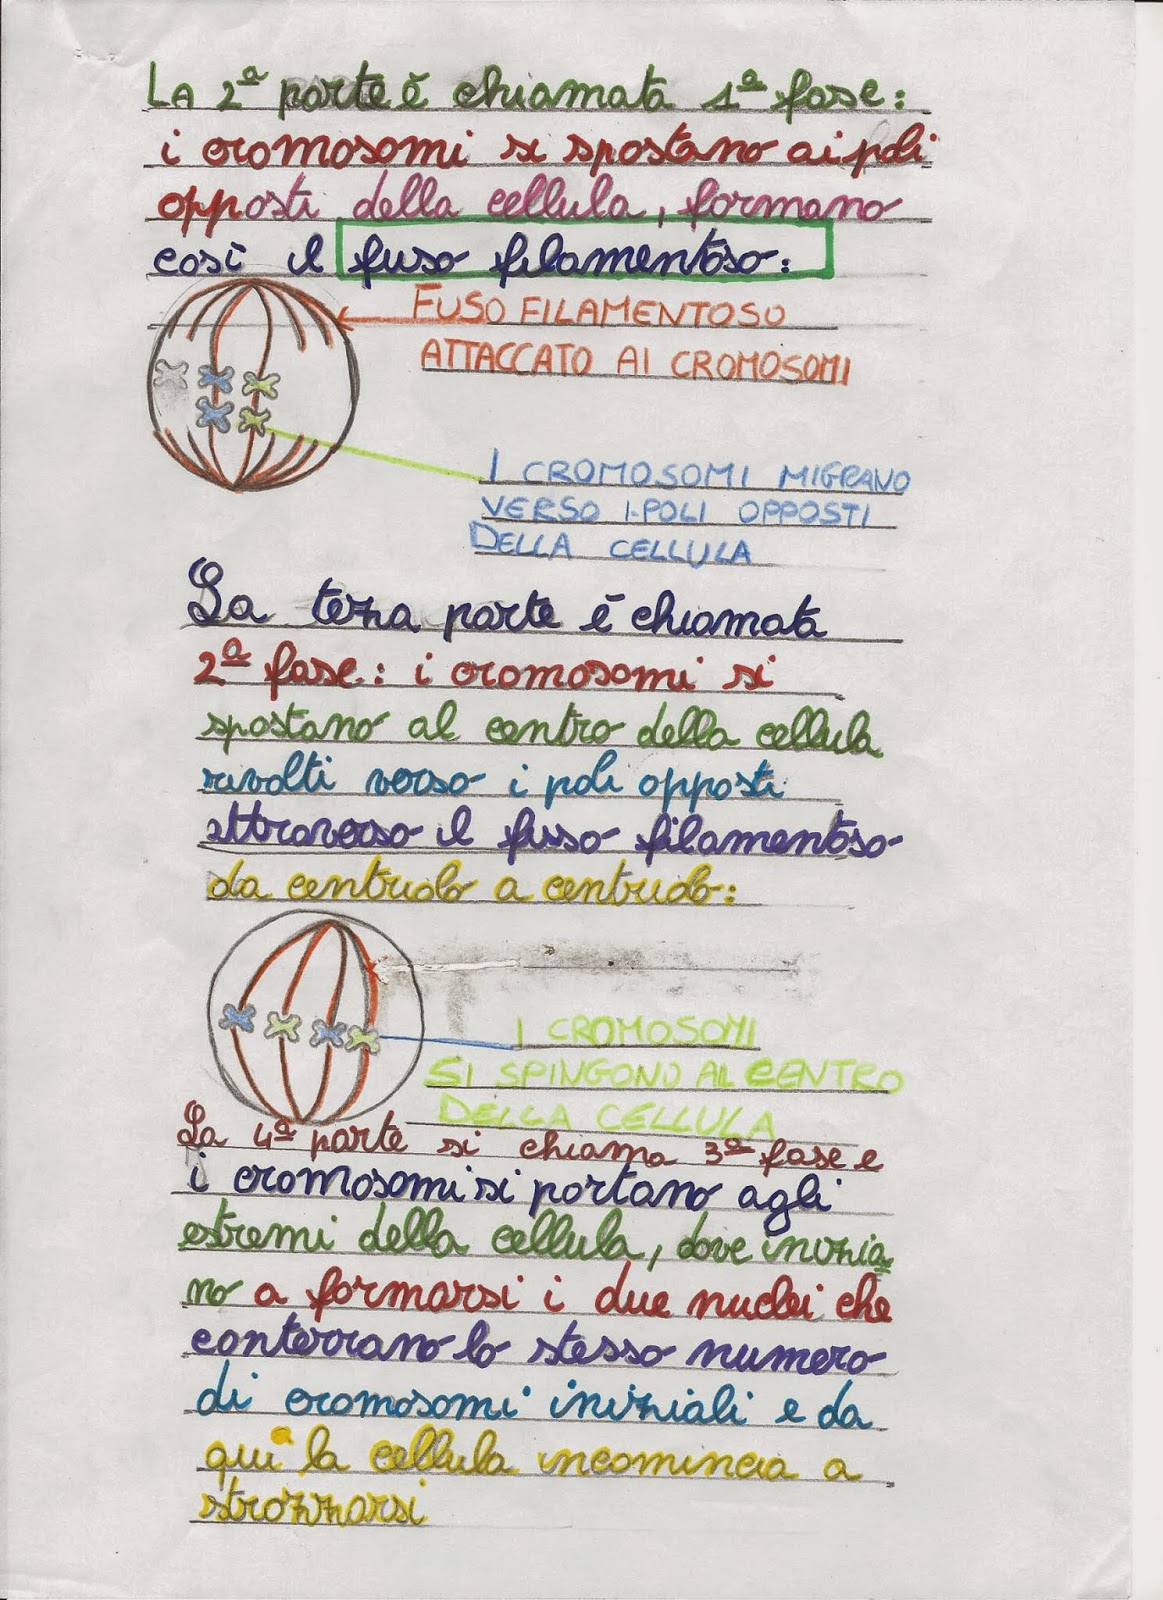 LA 2ª parte è chiamata 1ª fase:
i cromosomi si spostano ai poli
opposti della cellula, formano
così il fuso filamentoso:
FUSO FILAMENTOSO
ATTACCATO AI CROMOSOMI
I CROMOSOMI MIGRANO
VERSO I POLI OPPOSTI
DELLA CELLULA
La terza parte è chiamata
2ª fase: i cromosomi si
spostano al centro della cellula
rivolti verso i poli opposti
attraverso il fuso filamentoso
da centriolo a centriolo:
I CROMOSOMI
SI SPINGONO AL CENTRO
DELLA CELLULA
La 4ª parte si chiama 3ª fase e
i cromosomi si portano agli
estremi della cellula, dove inizia
no a formarsi i due nuclei che
conterrano lo stesso numero
di cromosomi iniziali e da
qui la cellula incomincia a
strozzarsi